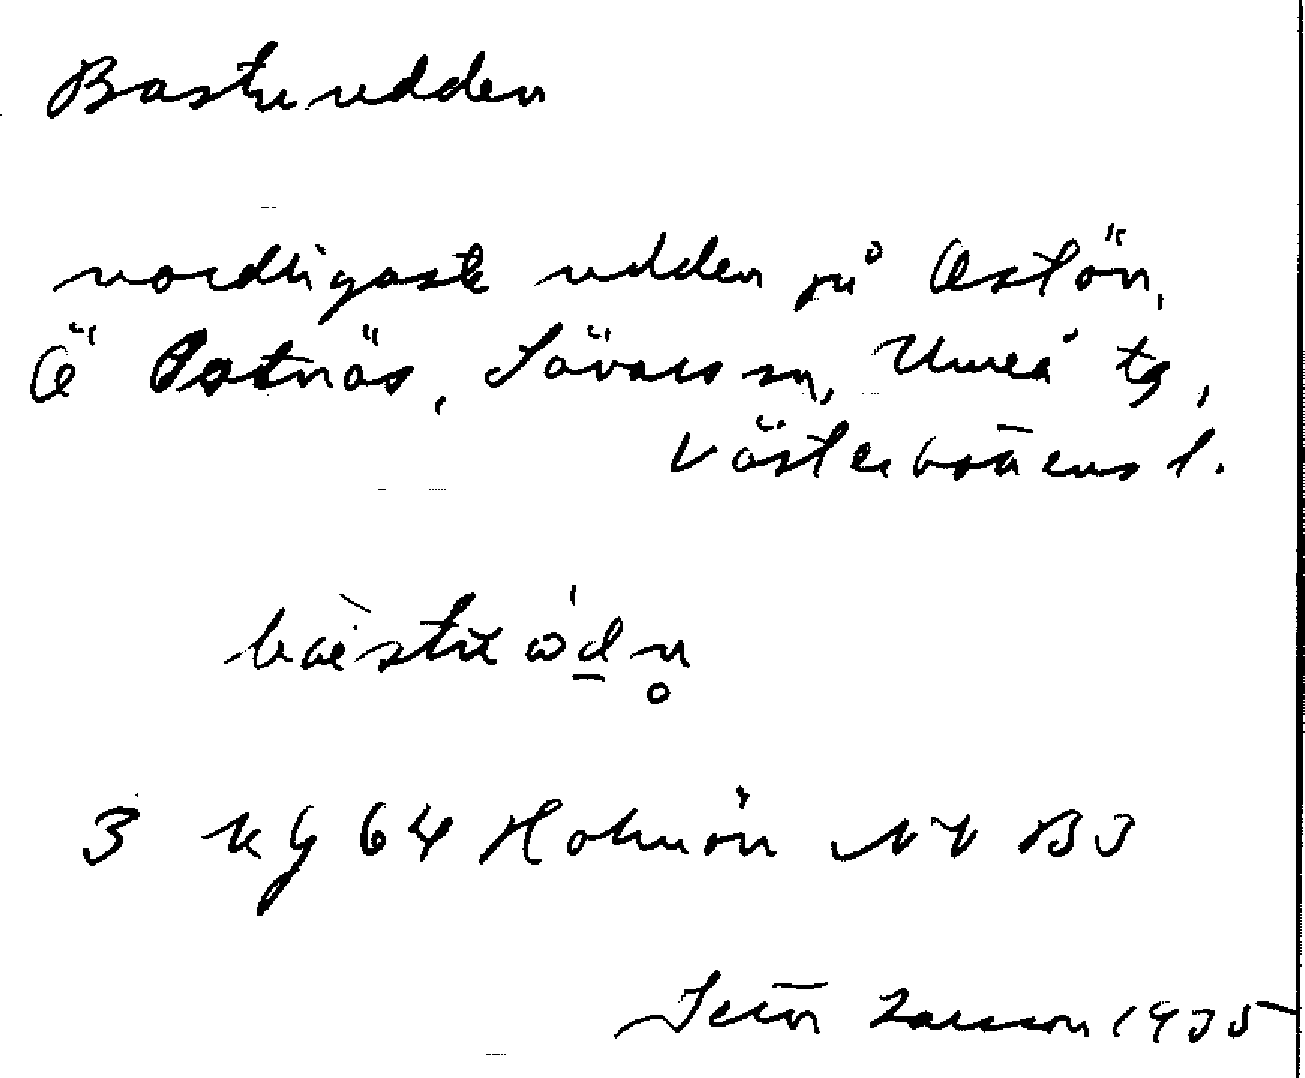 Bastuudden
nordligaste udden på Ostön,
Ö Ostnäs, Sävars sn, Umeå tg,
Västerbottens l.
3 kg 64 Holmön NV B3
Larsson 1935